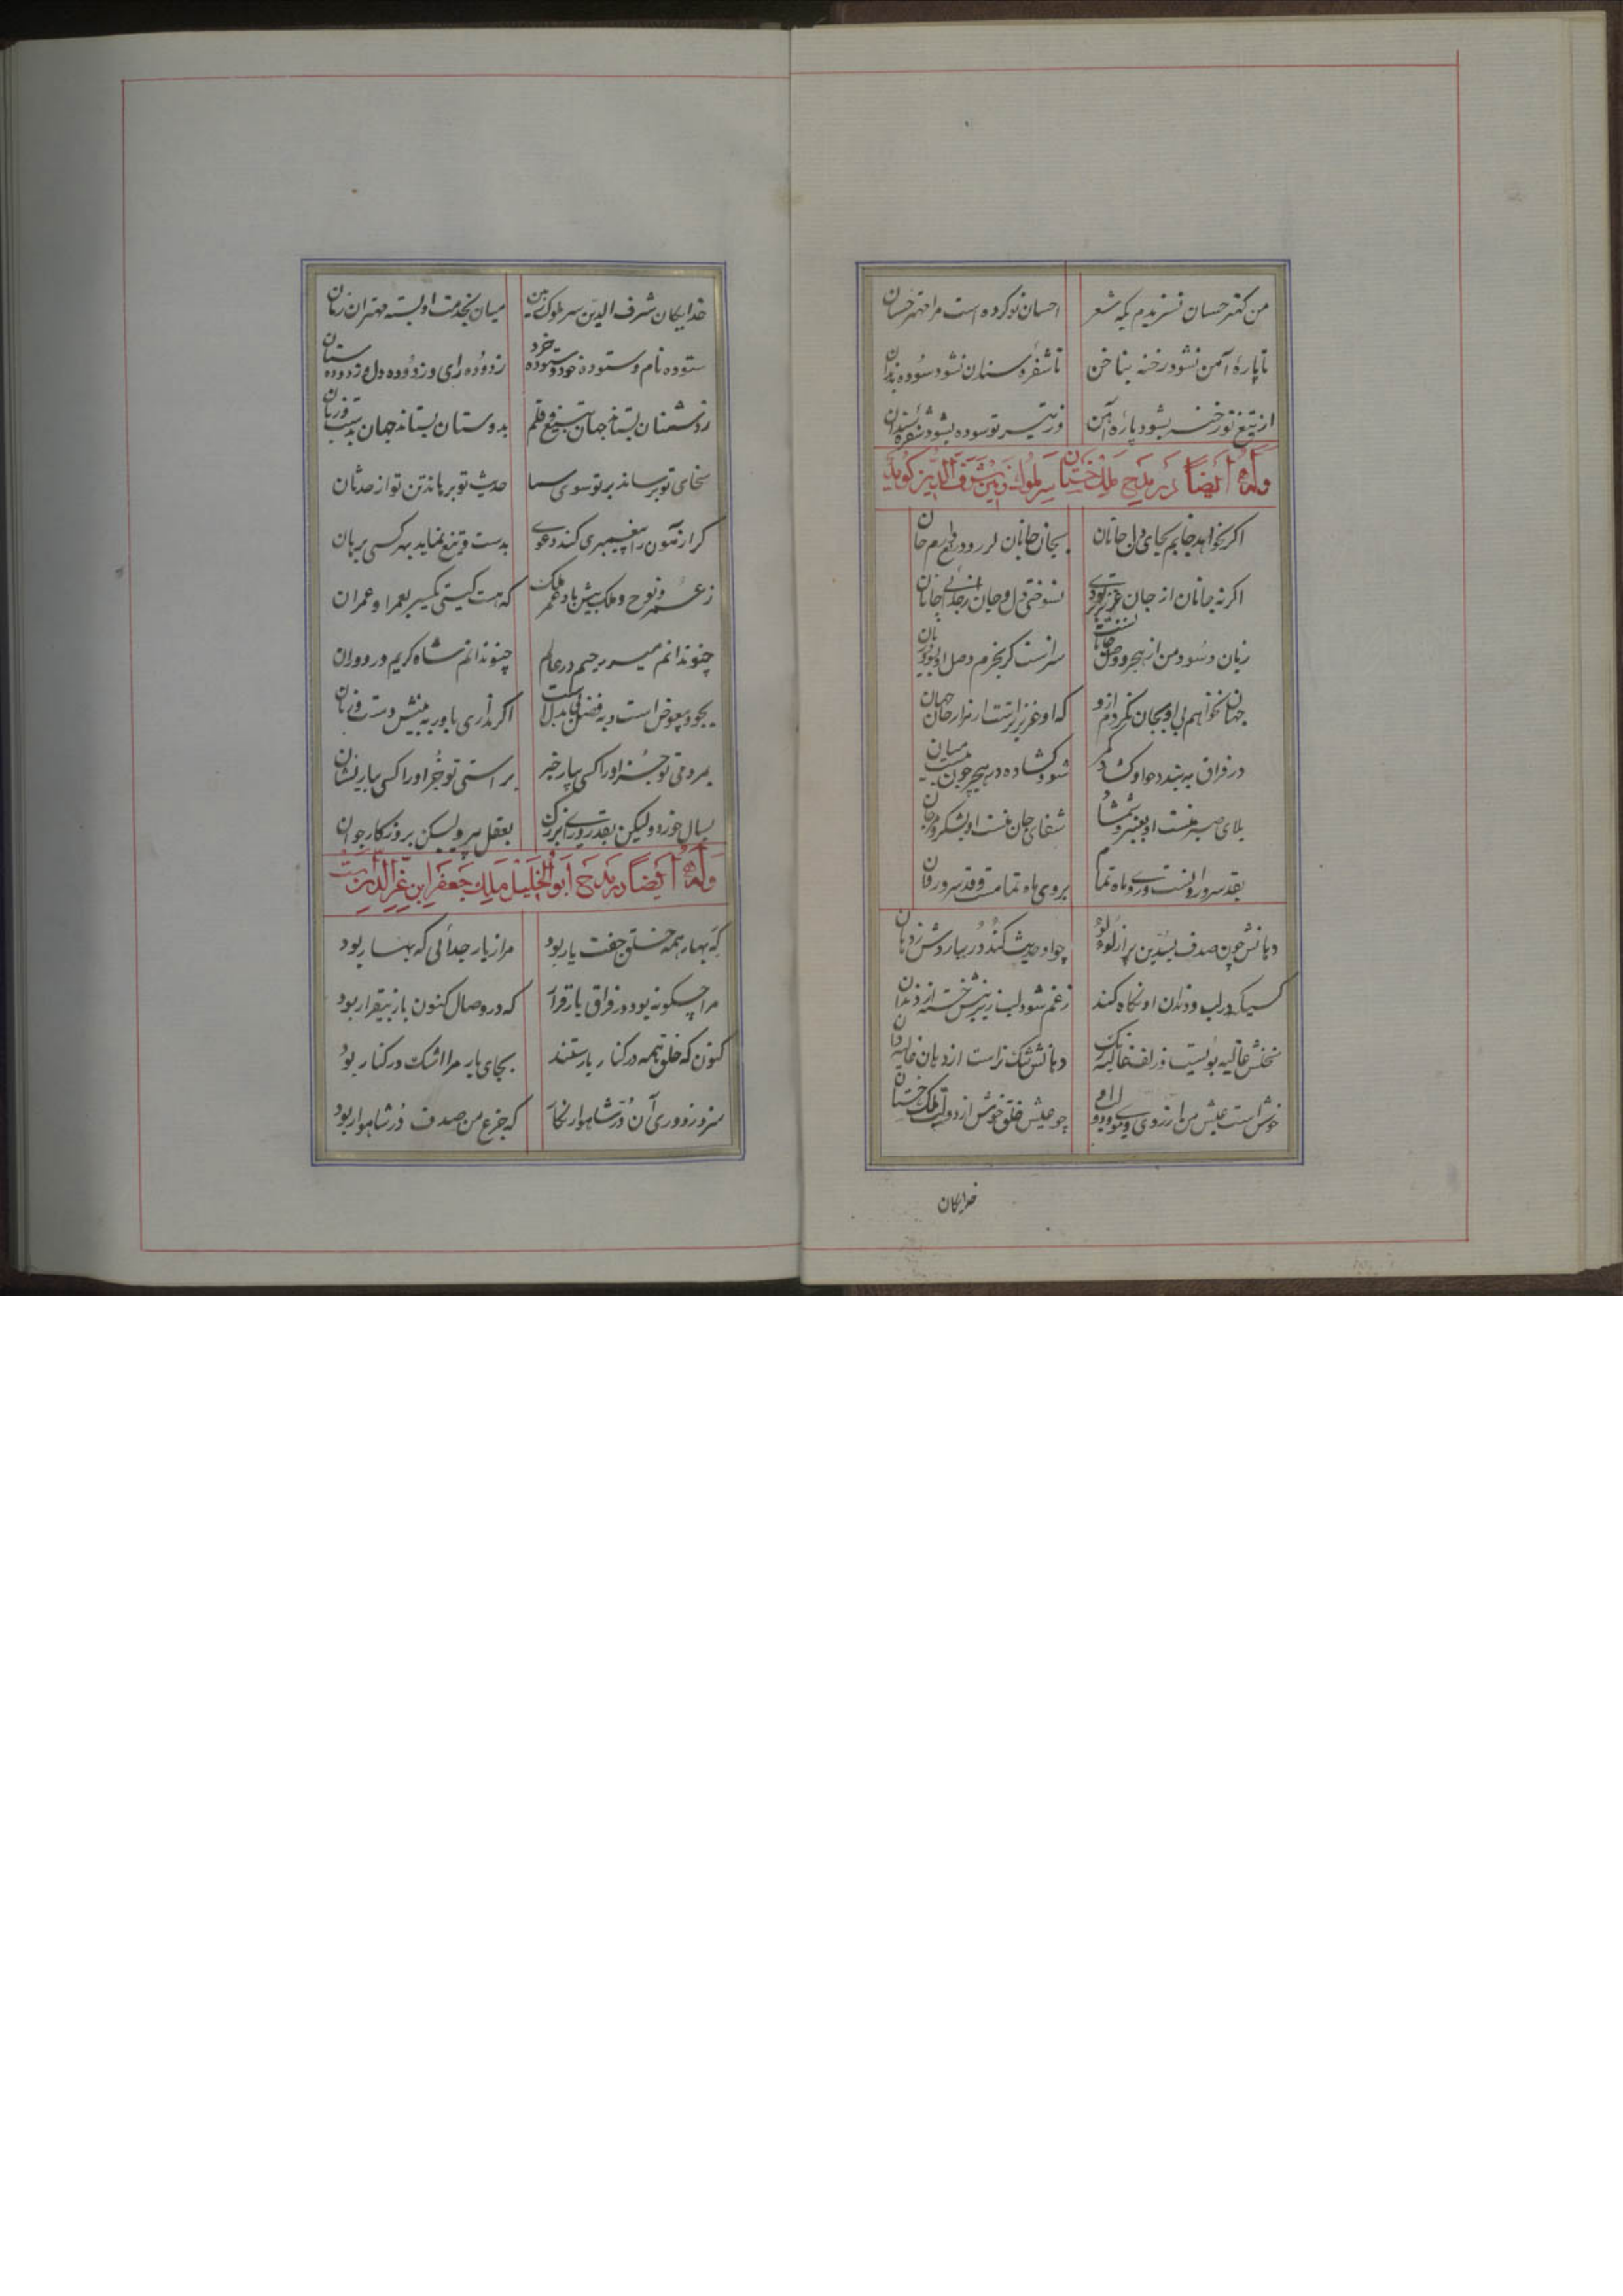 من کهتر حسان نسزیدم بکه شعر احسان تو کرده است مرا مهتر حسان
تا پارهٔ آهن نشود رخنه بناخن تا شفرهٔ سندان نشود سوده بدندان
از تیغ تو رخنه بشود پارهٔ آهن وز تیر تو سوده بشود شفرهٔ سندان
وله ایضاً در مدح ملک جستان سر ملوک زمین شرف الدین گوید
اگر بخواهد جانم بجای دل جانان بجان جانان گر زو دریغ دارم جان
اگر نه جانان از جان عزیزتر بودی نسوختی دل و جان از جدائی جانان
زیان و سود من از هجر و وصل جانانست سزاست گر بخرم وصل او بسود و زیان
جهان نخواهم بی او بجان نگردم ازو که او عزیزتر است از هزار جان و جهان
در فراق به بندد چو او گشاد کمر شود گشاده در هجر چون ببست میان
بلای صبر منست او بعنبر و شمشاد شفای جان منست او بشکر و مرجان
بقد سرو روانست و روی ماه تمام بروی ماه تمامست و قد سرو روان
دهانش چون صدف بسدین پر از لؤلؤ چو او حدیث کند در ببارد وش ز دهان
کسیکه در لب و دندان او نگاه کند ز غم شود لب زیرینش خسته از دندان
خطش غالیه بوئیست زلفش غالیه رنگ دهانش تنگ تر است از دهان غالیه دان
خوش است عیش من از روی او و بوی لب او چو عیش خلق خوش از دولت ملک جستان
خدایگان
خدایگان شرف الدین سر ملوک زمین میان بخدمت او بسته مهتران زمان
ستوده نام و ستوده خود و ستوده خرد زدوده رای و زدوده دل و زدوده سنان
ز دشمنان بستاند جهان بتیغ و قلم بدوستان بستاند جهان بدست و زبان
سخای تو برساند بر تو سوی سما حدیث تو برهاند تن تو از حدثان
گر آزمون را پیغمبری کند دعوی بدست و تیغ نماید بهر کسی برهان
ز عمر و نوح و ملک بیش باد عمر ملک که هست گیتی یکسر بعمر او عمران
چنو ندانم میر رحیم در عالم چنو ندانم شاه کریم در دوران
بجود بیعوض است و به فضل بی بدلست اگر نداری باور به بینش دست و بنان
بمردمی تو جز او را کسی بیار خبر براستی تو جز او را کسی بیار نشان
بسال خورد ولیکن بقدر و رای بزرگ بعقل پیر ولیکن بروزگار جوان
وله ایضاً در مدح ابوالخلیل ملک جعفر ابن عز الدین است
گه بهار همه خلق جفت یار بود مرا ز یار جدائی گه بهار بود
مرا چگونه بود در فراق یار قرار که در وصال کنون یار بیقرار بود
کنون که خلق همه در کنار یار ستند بجای یار مرا اشک در کنار بود
سزد ز دوری آن در شاهوار نگار که جزع من صدف در شاهوار بود